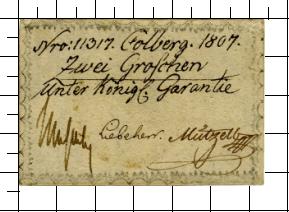 Nro: 11317. Colberg. 1807.
Zwei Groschen
Unter Königl. Garantie
Liebeherr. Mützell